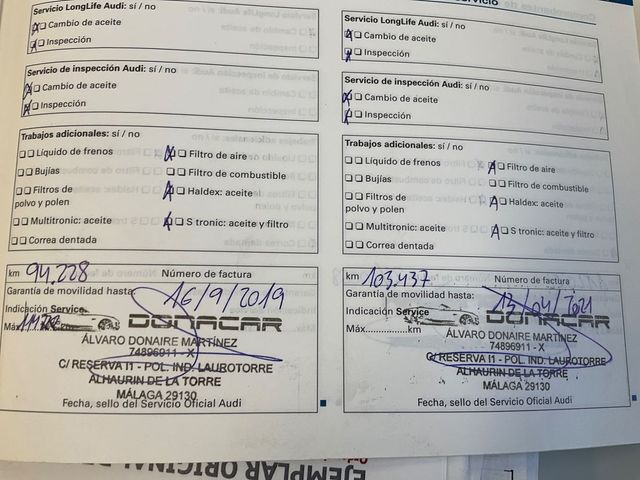 Servicio
Servicio LongLife Audi: sí / no
Cambio de aceite
Inspección
Servicio de inspección Audi: sí / no
Cambio de aceite
Inspección
Trabajos adicionales: sí / no
Líquido de frenos
Filtro de aire
Bujías
Filtro de combustible
Filtros de
polvo y polen
Haldex: aceite
Multitronic: aceite
S tronic: aceite y filtro
Correa dentada
km 94.228
Número de factura
Garantía de movilidad hasta:
16/9/2019
Indicación Service
Máx. km
DONACAR
ÁLVARO DONAIRE MARTÍNEZ
74896911 - X
C/ RESERVA 11 - POL. IND. LAUROTORRE
ALHAURIN DE LA TORRE
MÁLAGA 29130
Fecha, sello del Servicio Oficial Audi
Servicio LongLife Audi: sí / no
Cambio de aceite
Inspección
Servicio de inspección Audi: sí / no
Cambio de aceite
Inspección
Trabajos adicionales: sí / no
Líquido de frenos
Filtro de aire
Bujías
Filtro de combustible
Filtros de
polvo y polen
Haldex: aceite
Multitronic: aceite
S tronic: aceite y filtro
Correa dentada
km 103.437
Número de factura
Garantía de movilidad hasta:
13/04/2021
Indicación Service
Máx. km
DONACAR
ÁLVARO DONAIRE MARTÍNEZ
74896911 - X
C/ RESERVA 11 - POL. IND. LAUROTORRE
ALHAURIN DE LA TORRE
MÁLAGA 29130
Fecha, sello del Servicio Oficial Audi
EJEMPLAR ORIGINAL